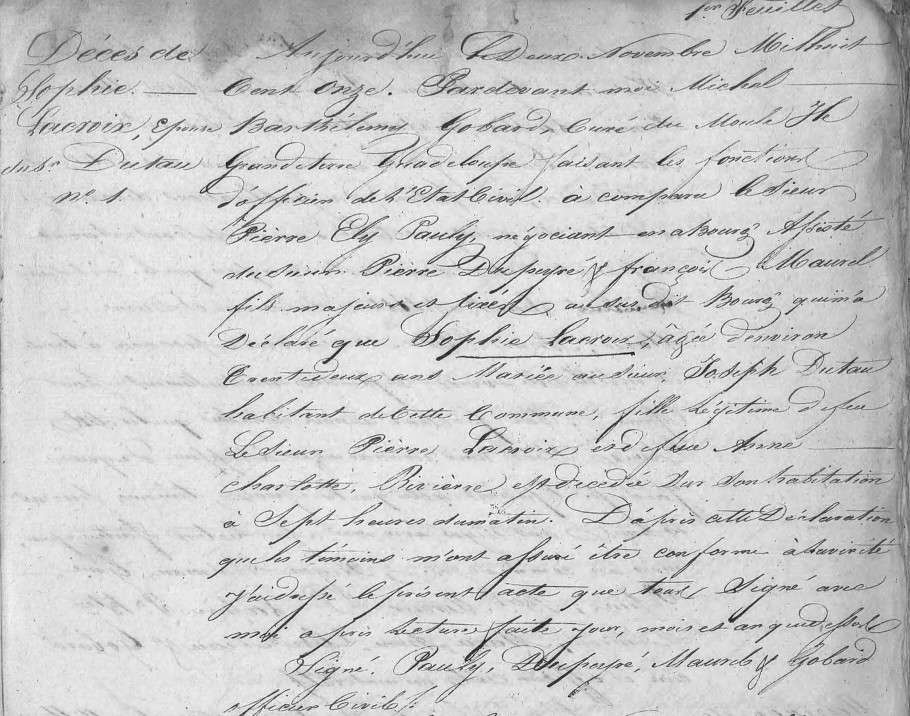 1er feuillet
Décès de
Sophie
Lacroix, Epouse
du Sr. Dutau
no. 1.
Aujourd'hui le Deux Novembre Mil huit
Cent Onze. Pardevant moi Michel
Barthélemy Gobard, Curé du Moule Ile
Grandeterre Guadeloupe faisant les fonctions
d'officier de l'Etat Civil. à comparu le Sieur
Pierre Ely Pauly, négociant en ce Bourg Assisté
du Sieur Pierre Dupeyré & françois Maurel
fils majeurs et fixés au susdit Bourg qui m'a
Déclaré que Sophie Lacroix, âgée d'environ
Trente deux ans Mariée au Sieur Joseph Dutau
habitant de Cette Commune, fille légitime de feu
Le Sieur Pierre Lacroix et de feue Anne
Charlotte Rivière est décédée sur son habitation
à Sept heures du matin. D'après cette Déclaration
que les témoins m'ont assuré être conforme à la vérité
J'ai dressé le présent acte que tous Signé avec
moi après lecture faite jour, mois et an que dessus
Signé. Pauly, Dupeyré, Maurel & Gobard
officier Civil